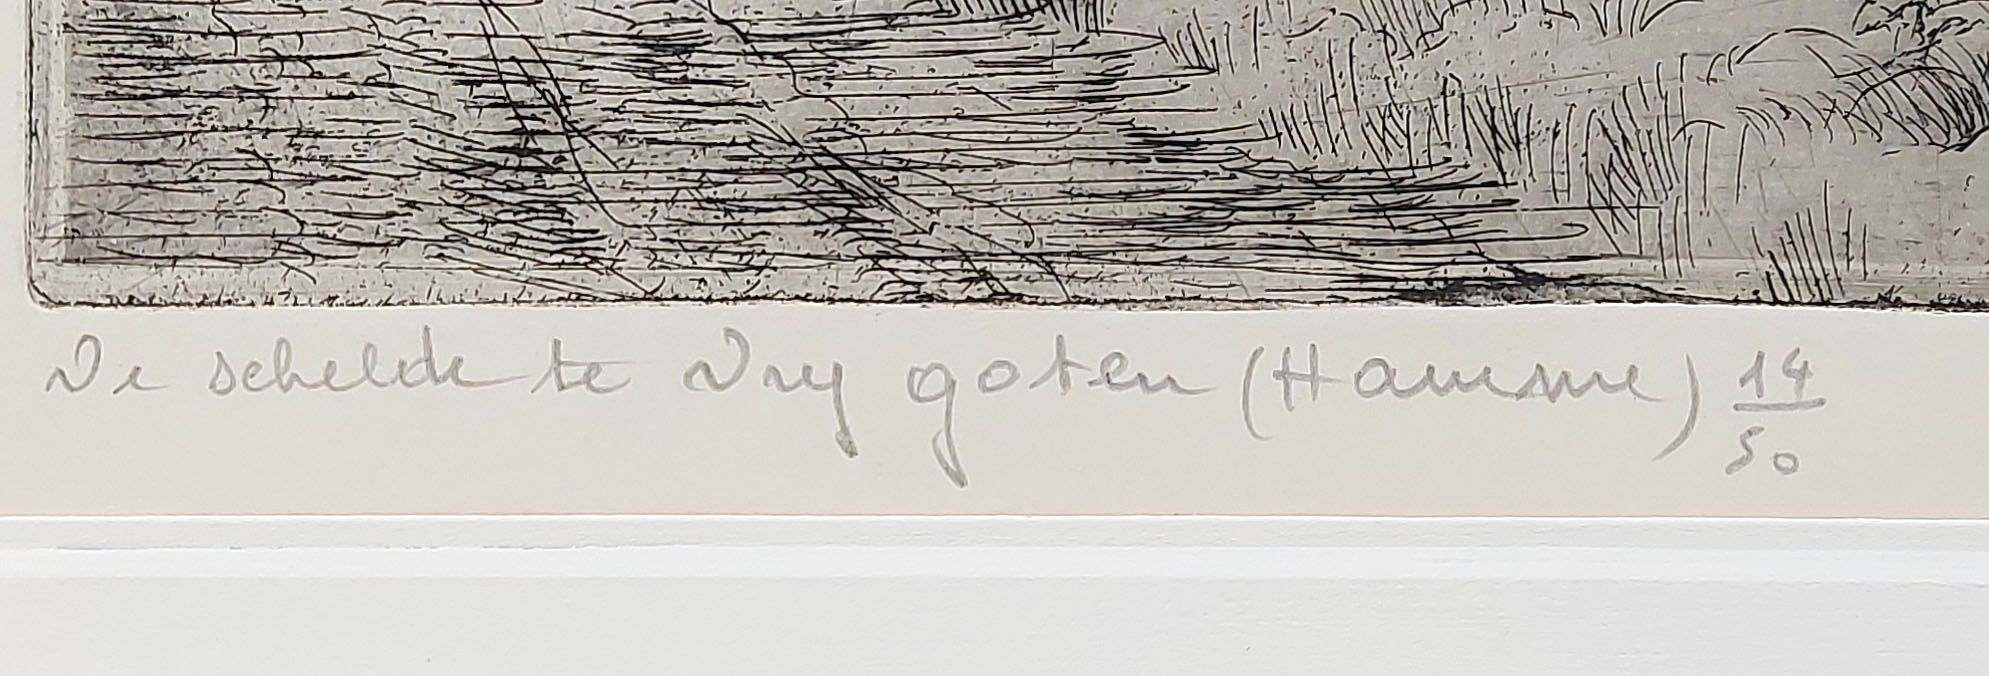 De schelde te Dry goten (Hamme) 14/50